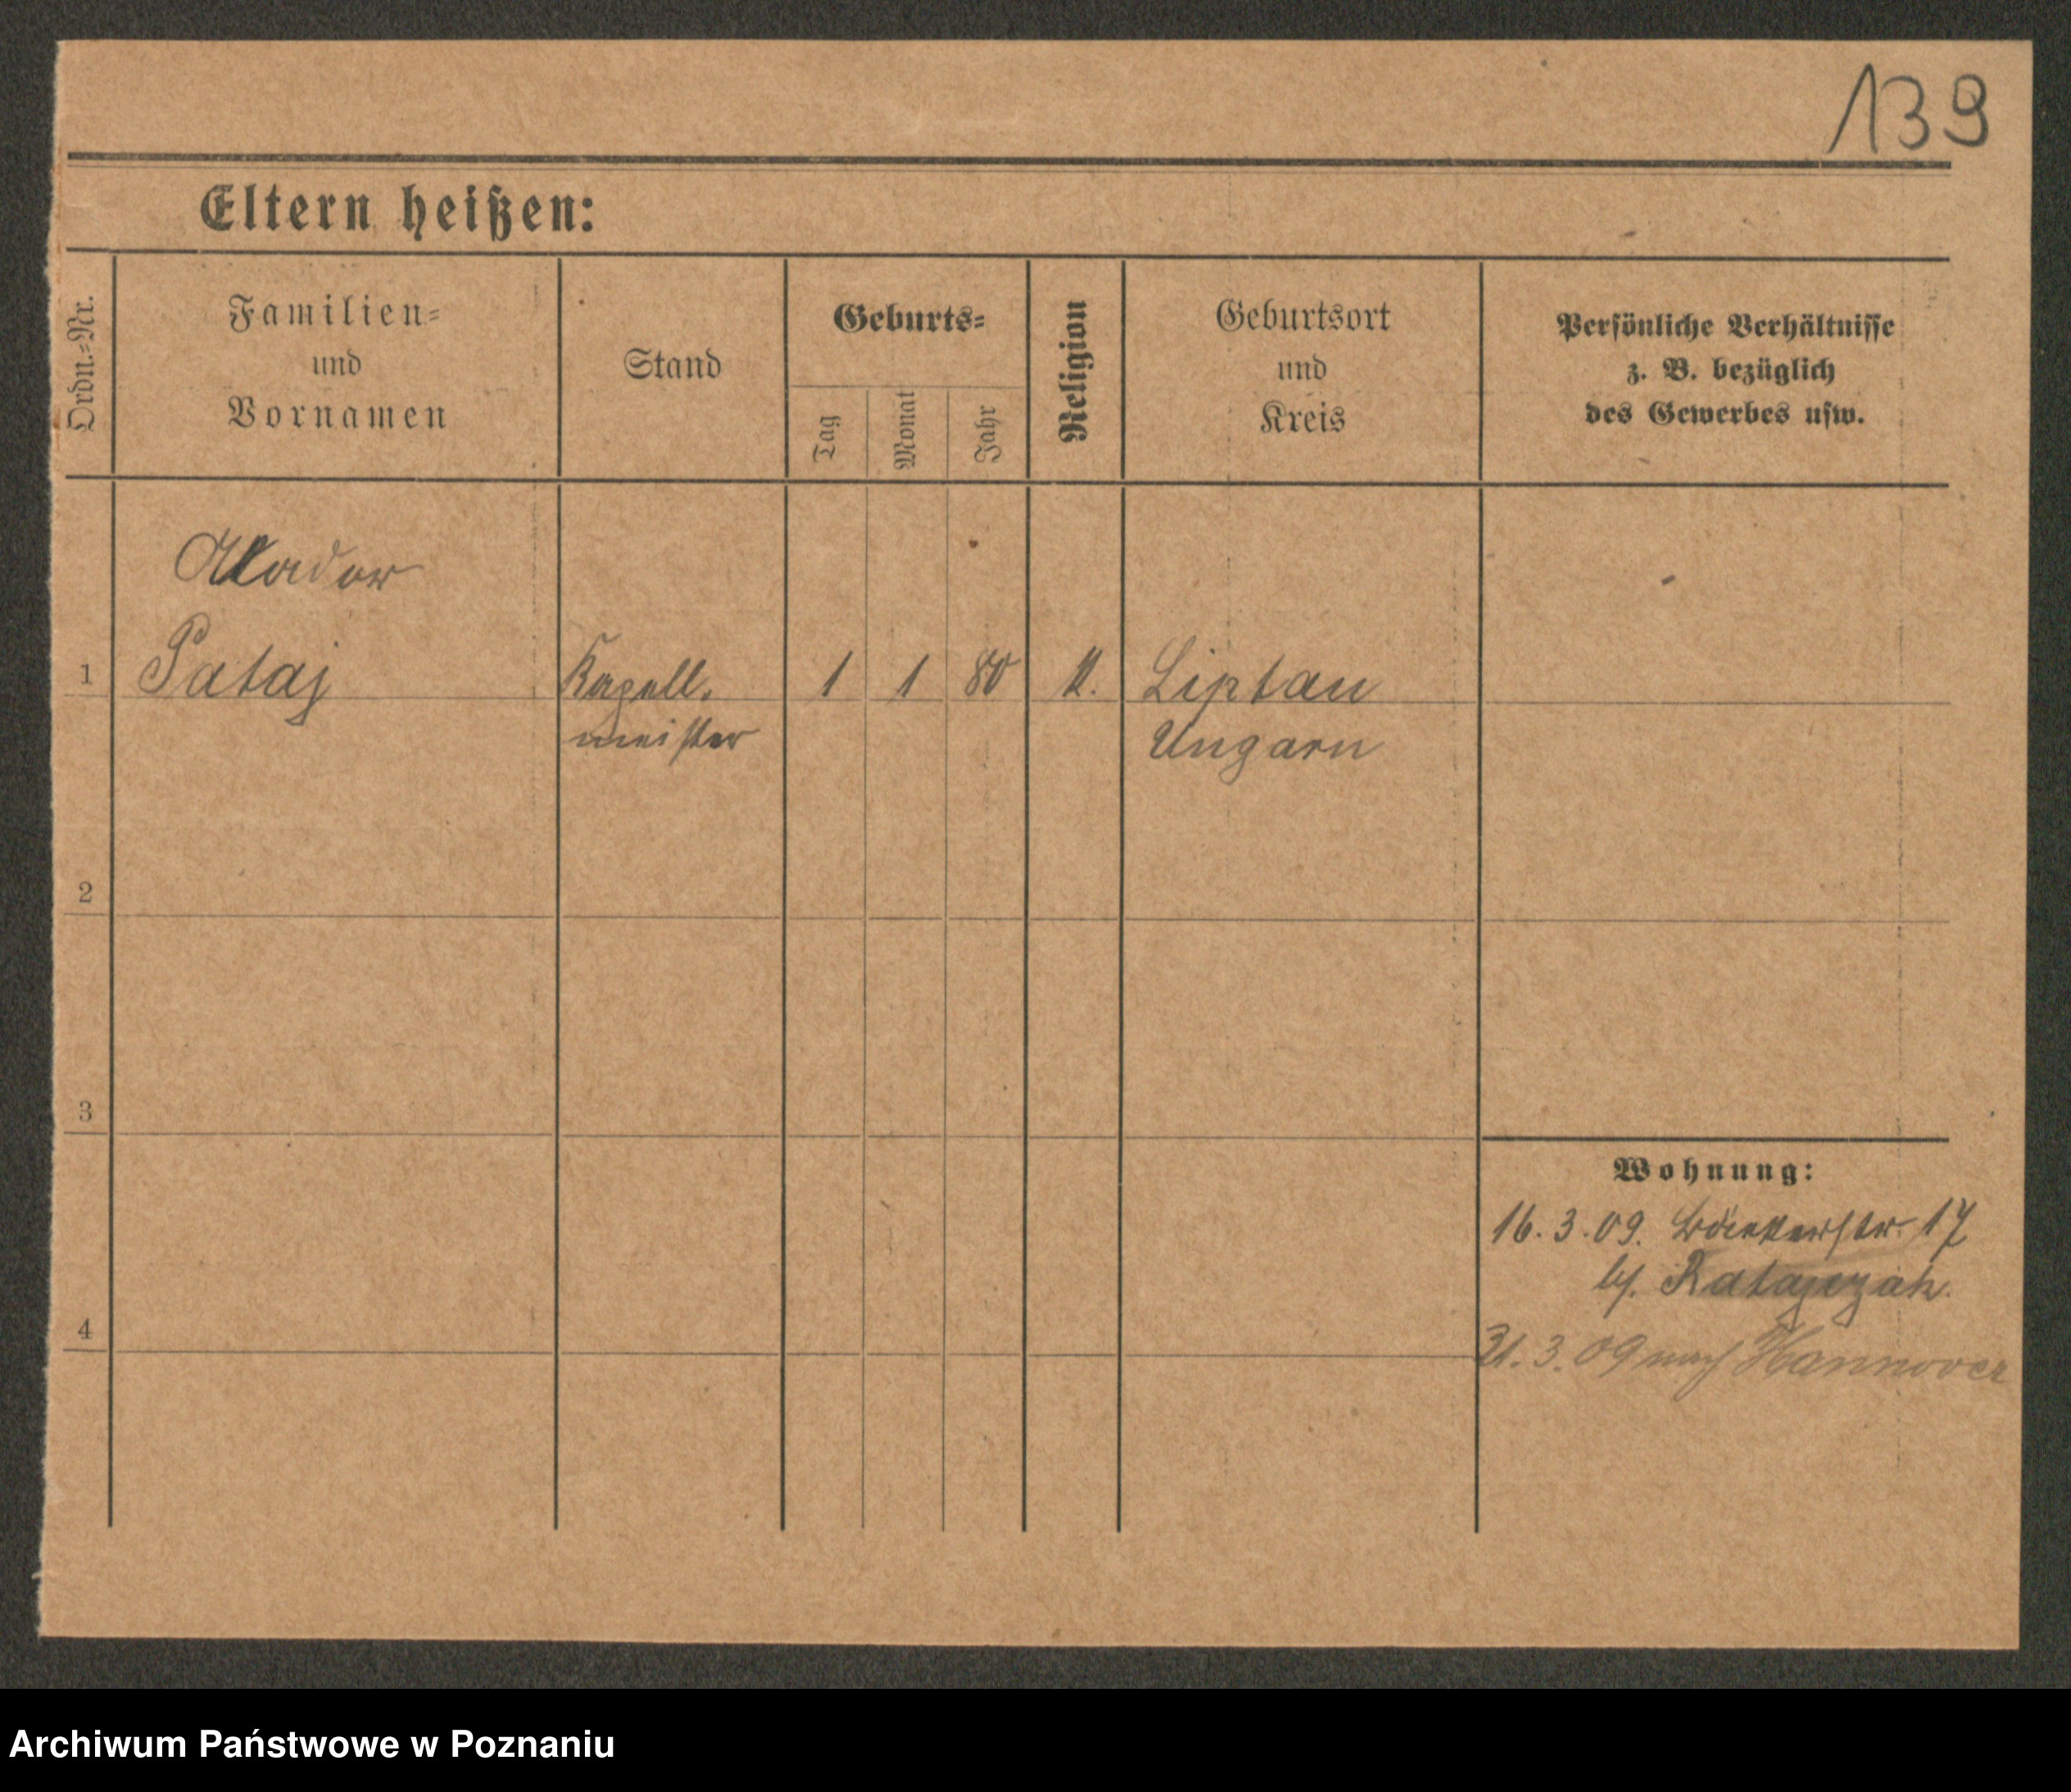 139
Eltern heißen:
Ordn.=Nr.
Familien=
und
Vornamen
Stand
Geburts=
Tag
Monat
Jahr
Religion
Geburtsort
und
Kreis
Persönliche Verhältnisse
z. B. bezüglich
des Gewerbes usw.
Aladar
1 Pataj Kapell. 1 1 80 Liptau
meister Ungarn
2
3
Wohnung:
16.3.09. Bäckerstr. 17
bj. Ratajczak.
4
31.3.09 nach Hannover
Archiwum Państwowe w Poznaniu